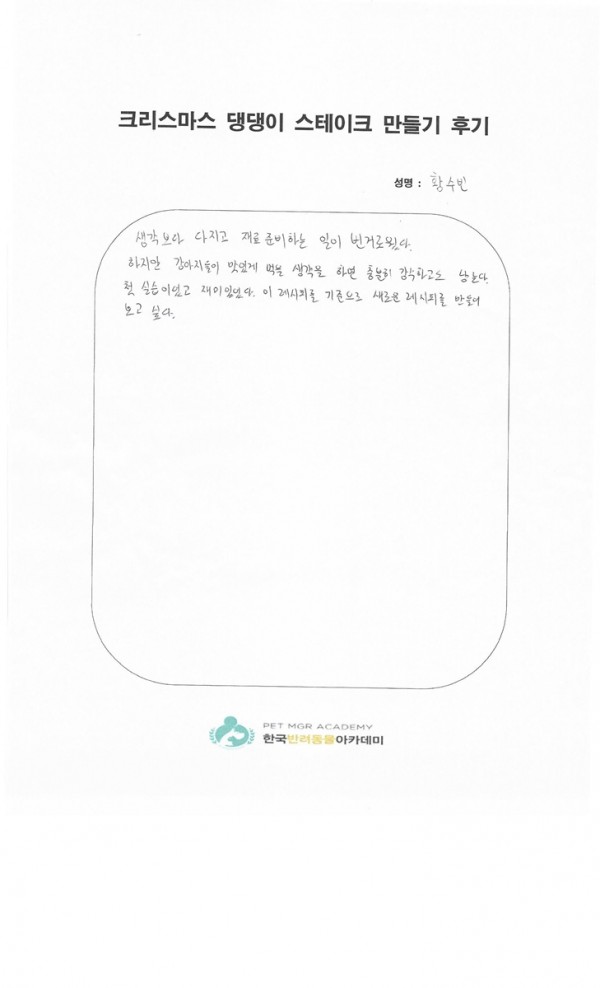 크리스마스 댕댕이 스테이크 만들기 후기
성명 : 황수빈
생각보다 다지고 재료준비하는 일이 번거로웠다.
하지만 강아지들이 맛있게 먹을 생각을 하면 충분히 감수하고도 남는다.
첫 실습이었고 재미있었다. 이 레시피를 기준으로 새로운 레시피를 만들어
보고 싶다.
PET MGR ACADEMY
한국반려동물아카데미